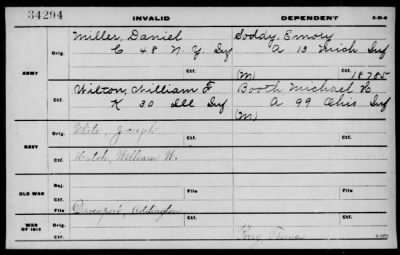 34294
INVALID DEPENDENT 3-25-6
Miller, Daniel Soddy, Emory
Orig. C 48 N.Y. Inf A 13 Mich Inf
ARMY (M) Ctf. 18785
Wilton, William F Booth Michael H
Ctf. K 30 Ill Inf A 99 Ohio Inf
(M)
White, Joseph
Orig. Ctf.
NAVY
Hatch, William W.
Ctf.
OLD WAR Rej. File Ctf.
Ctf. File
Davenport, Addington
WAR OF 1812 Orig. Ctf.
Ctf. Perry, Thomas